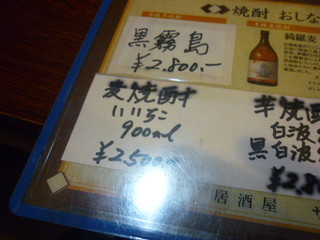 焼酎 おしな
黒霧島
¥2.800.-
綺羅麦
麦焼酎
いいちこ
900ml
¥2.500
芋焼酎
白波
黒白波
¥2.8
居酒屋